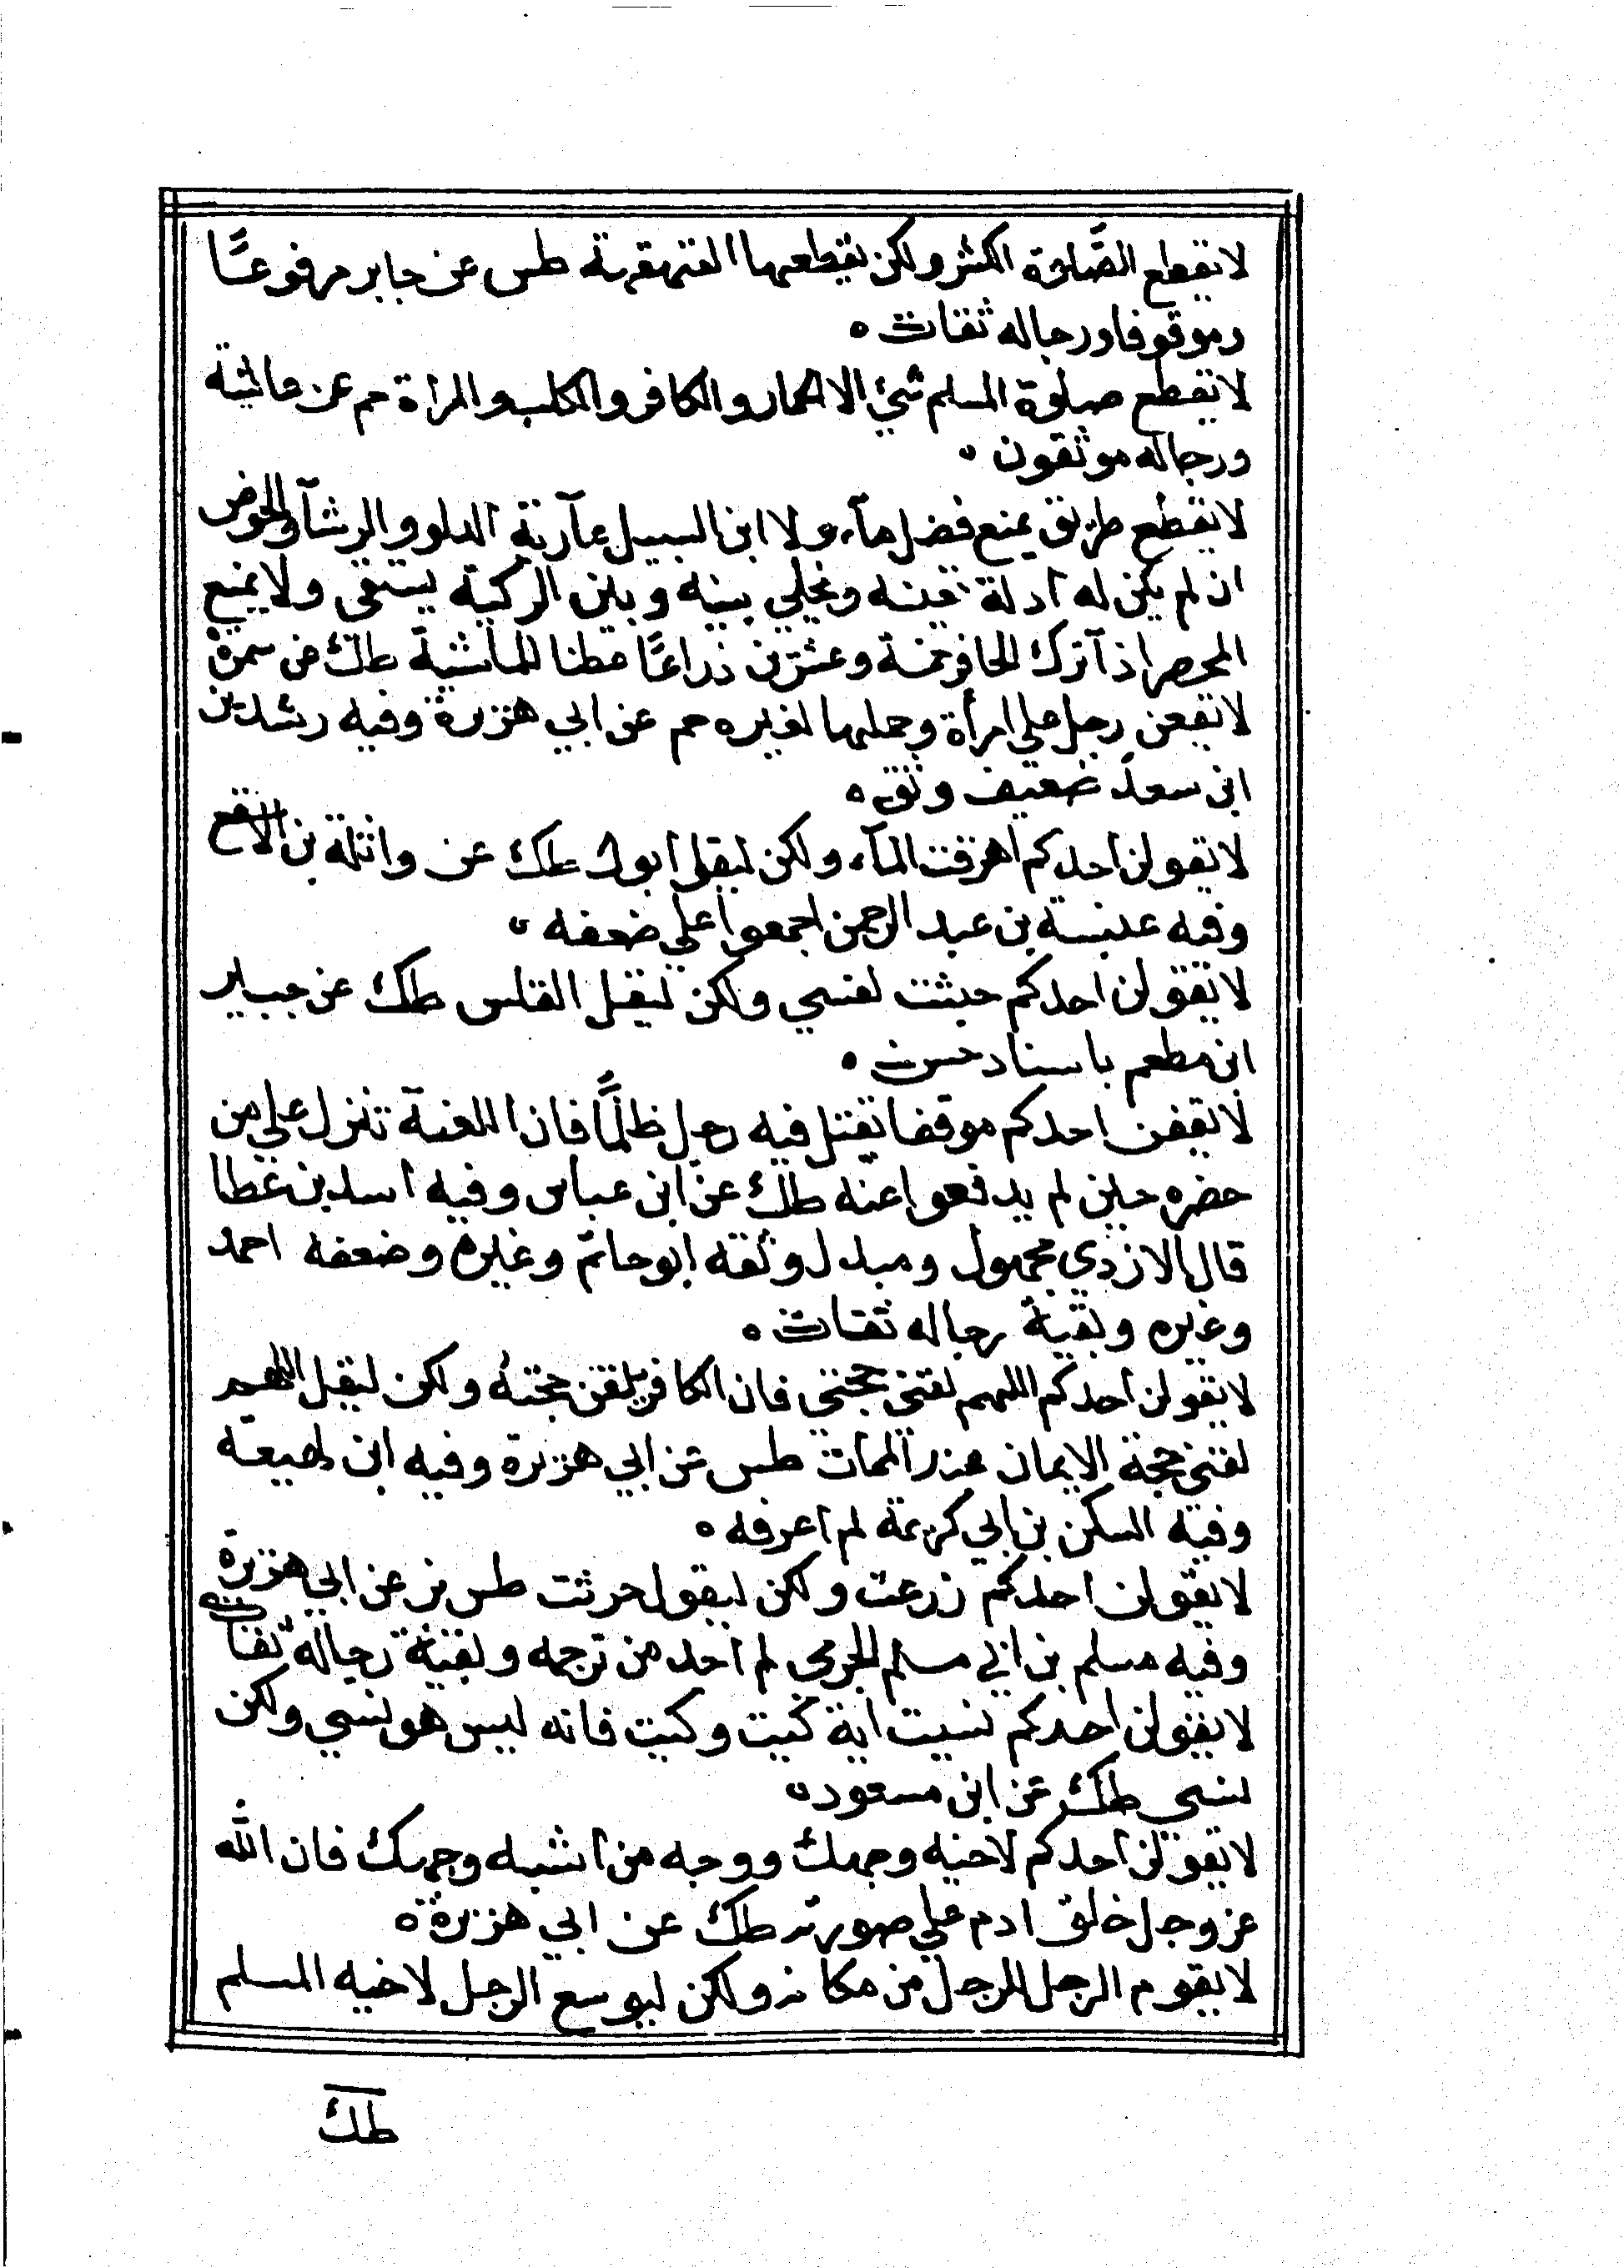 لا يقطع الصلوة الكشر ولكن يقطعها القهقهة طس عن جابر مرفوعًا
وموقوفا ورجاله ثقات ه
لا تقطع صلوة المسلم شيئ الا الحمار والكافر والكلب والمرأة حم عن عائشة
ورجاله موثقون ه
لا يقطع طريق يمنع فضل ماء ولا ابن السبيل عآرية الدلو والرشآ والحوض
ان لم يكن له اداة تعينه ويخلي بينه وبين الركية يستقى ولا يمنع
المحصر اذ آترك الحافر خمسة وعشرين ذراعًا عطنا للماشية طك عن سمرة
لا يقعن رجل علي امرأة وحملها لغيره حم عن ابي هريرة وفيه رشدين
ابن سعد ضعيف وثق ه
لا يقولن احدكم اهرقت المآء ولكن ليقل ابول طك عن واثلة بن الاسقع
وفيه عنبسة بن عبد الرحمن اجمعوا علي ضعفه ه
لا يقولن احدكم خبثت نفسي ولكن ليقل لقست طك عن جبير
ابن مطعم باسناد حسن ه
لا يقفن احدكم موقفا يقتل فيه رجل ظلمًا فان اللعنة تنزل علي من
حضره حين لم يدفعوا عنه طك عن ابن عباس وفيه اسد بن عطا
قال الازدي مجهول ومندل وثقه ابو حاتم وغيره وضعفه احمد
وغيره وبقية رجاله ثقات ه
لا يقولن احدكم اللهم لقني حجتي فان الكافر يلقن حجته ولكن ليقل اللهم
لقني حجة الايمان عند الممات طس عن ابي هريرة وفيه ابن لهيعة
وفيه السكن بن ابي كريمة لم اعرفه ه
لا يقولن احدكم زرعت ولكن ليقول حرثت طس بز عن ابي هريرة
وفيه مسلم بن ابي مسلم الجرمي لم اجد من ترجمه وبقية رجاله ثقات
لا يقولن احدكم نسيت اية كيت وكيت فانه ليس هو نسي ولكن
نسي طك عن ابن مسعود ه
لا يقولن احدكم لاخيه وجهك ووجه من اشبه وجهك فان الله
عز وجل خلق ادم علي صورته طك عن ابي هريرة ه
لا يقوم الرجل للرجل من مكانه ولكن ليوسع الرجل لاخيه المسلم
طك